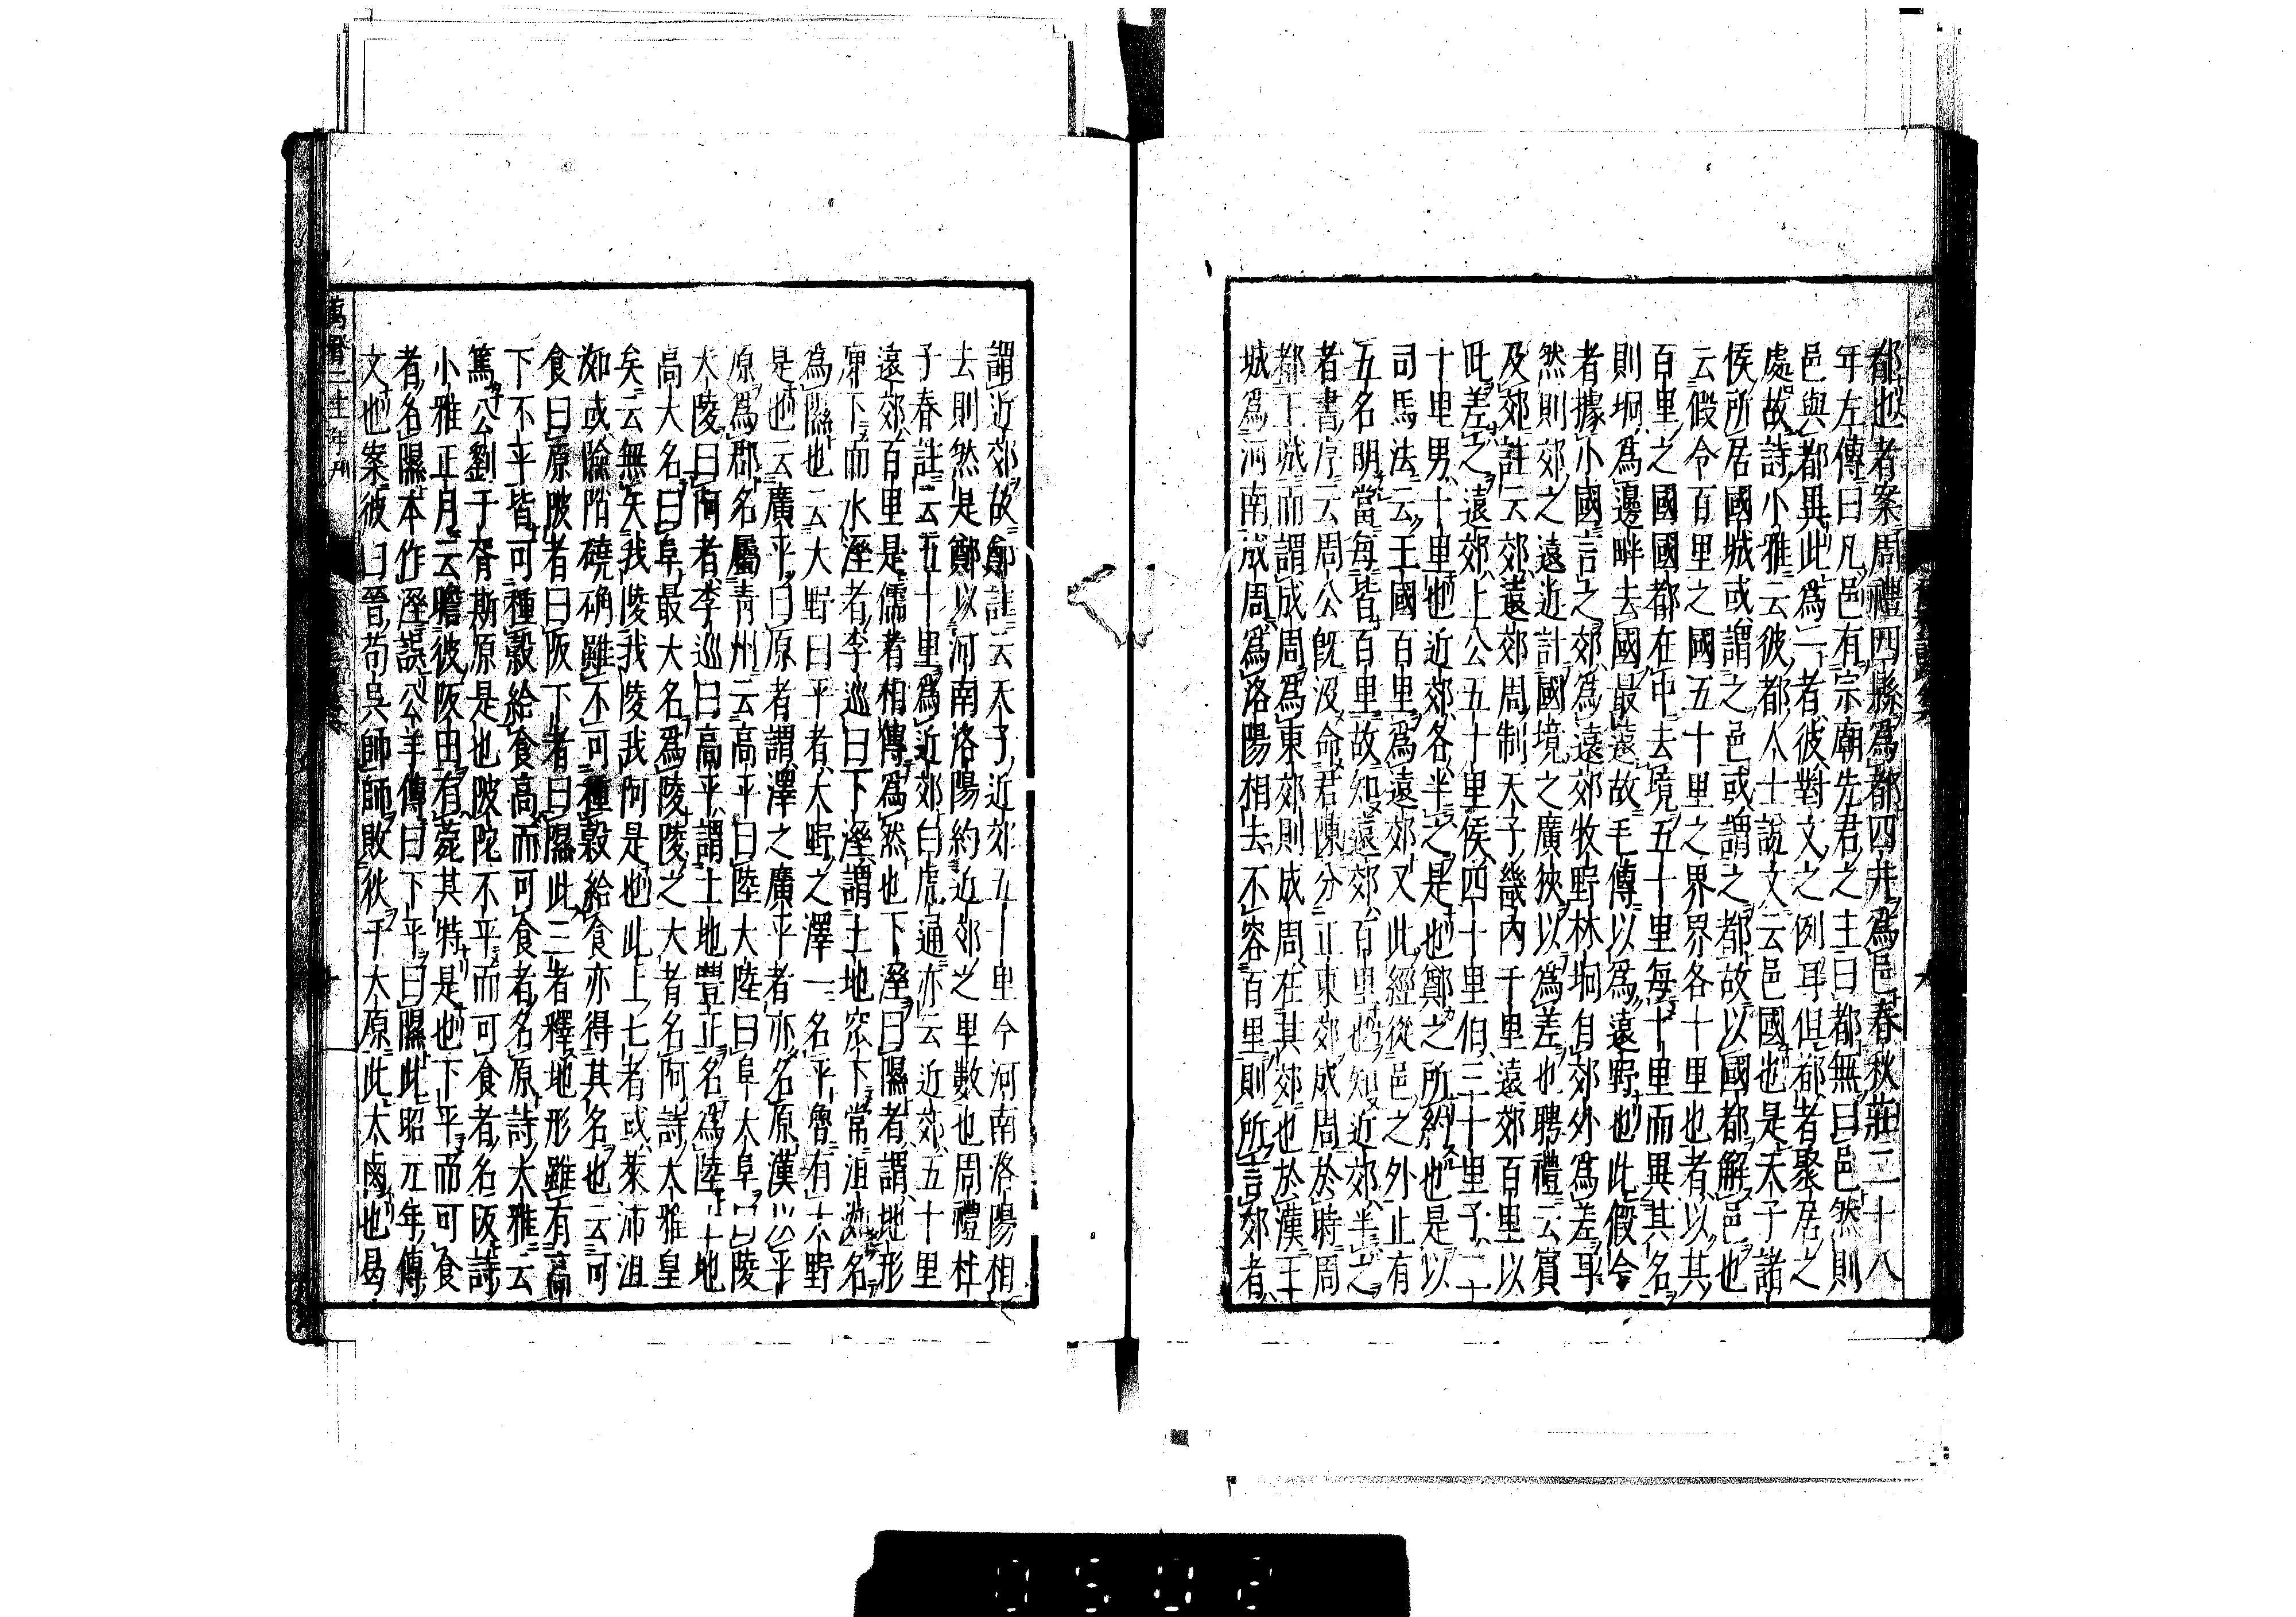 都也者案周禮四縣爲都四井爲邑春秋莊二十八
年左傳曰凡邑有宗廟先君之主曰都無曰邑然則
邑與都異此爲一者彼對文之例耳但都者聚居之
處故詩小雅云彼都人士說文云邑國也是天子諸
侯所居國城或謂之邑或謂之都故以國都解邑也
云假令百里之國五十里之界界各十里也者以其
百里之國國都在中去境五十里每十里而異其名
則坰爲邊畔去國最遠故毛傳以爲遠野也此假令
者據小國言之郊爲遠郊牧野林坰自郊外爲差耳
然則郊之遠近計國境之廣狹以爲差也聘禮云賓
及郊註云郊遠郊周制天子畿內千里遠郊百里以
此差之遠郊上公五十里侯四十里伯三十里子二十
十里男十里也近郊各半之是也鄭之所約也是以
司馬法云王國百里爲遠郊又此經從邑之外止有
五名明當每皆百里故知遠郊百里也知近郊半之
者書序云周公旣沒命君陳分正東郊成周於時周
都王城而謂成周爲東郊則成周在其郊也於漢王
城爲河南成周爲洛陽相去不容百里則所言郊者
謂近郊故鄭註云天子近郊五十里今河南洛陽相
去則然是鄭以河南洛陽約近郊之里數也周禮杜
子春註云五十里爲近郊白虎通亦云近郊五十里
遠郊百里是儒者相傳爲然也下溼曰隰者謂地形
庳下而水溼者李巡曰下溼謂土地窊下常沮洳名
爲隰也云大野曰平者大野之澤一名平魯有大野
是也云廣平曰原者謂澤之廣平者亦名原漢以平
原爲郡名屬青州云高平曰陸大陸曰阜大阜曰陵
大陵曰阿者李巡曰高平謂土地豐正名爲陸土地
高大名曰阜最大名爲陵陵之大者名阿詩大雅皇
矣云無矢我陵我陵我阿是也此上七者或萊沛沮
洳或險陗磽确雖不可種穀給食亦得其名也云可
食曰原陂者曰阪下者曰隰此三者釋地形雖有高
下不平皆可種穀給食高而可食者名原詩大雅云
篤公劉于胥斯原是也陂陀不平而可食者名阪詩
小雅正月云瞻彼阪田有菀其特是也下平而可食
者名隰本作溼誤公羊傳曰下平曰隰此昭元年傳
文也案彼曰晉荀吳師師敗狄于大原此大鹵也曷